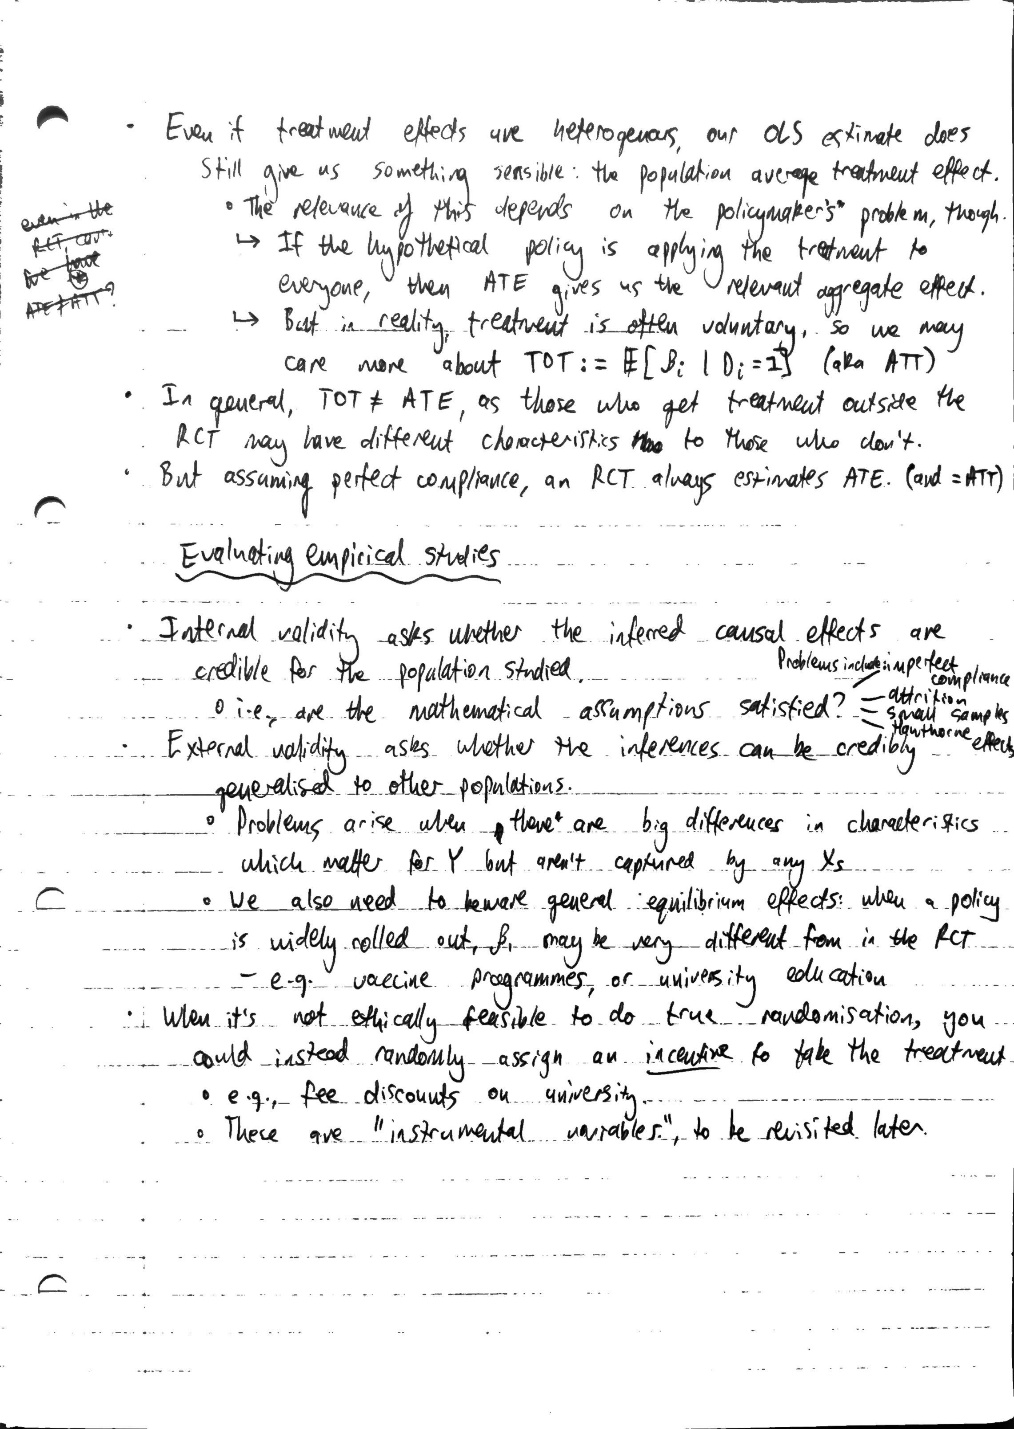 • Even if treatment effects are heterogenous, our OLS estimate does
still give us something sensible: the population average treatment effect.
◦ The relevance of this depends on the policymaker's problem, though.
even in the
RCT, can
we have
ATE ≠ ATT?
↳ If the hypothetical policy is applying the treatment to
everyone, then ATE gives us the relevant aggregate effect.
↳ But in reality, treatment is often voluntary, so we may
care more about TOT := E[βi | Di = 1] (aka ATT)
• In general, TOT ≠ ATE, as those who get treatment outside the
RCT may have different characteristics to those who don't.
• But assuming perfect compliance, an RCT always estimates ATE. (and = ATT)
Evaluating empirical studies
• Internal validity asks whether the inferred causal effects are
credible for the population studied.
◦ i.e., are the mathematical assumptions satisfied?
Problems include: imperfect
compliance
attrition
small samples
Hawthorne effects
• External validity asks whether the inferences can be credibly
generalised to other populations.
◦ Problems arise when there are big differences in characteristics
which matter for Y but aren't captured by any Xs
◦ We also need to beware general equilibrium effects: when a policy
is widely rolled out, β1 may be very different from in the RCT
– e.g. vaccine programmes, or university education
• When it's not ethically feasible to do true randomisation, you
could instead randomly assign an incentive to take the treatment
◦ e.g., fee discounts on university.
◦ These are "instrumental variables", to be revisited later.